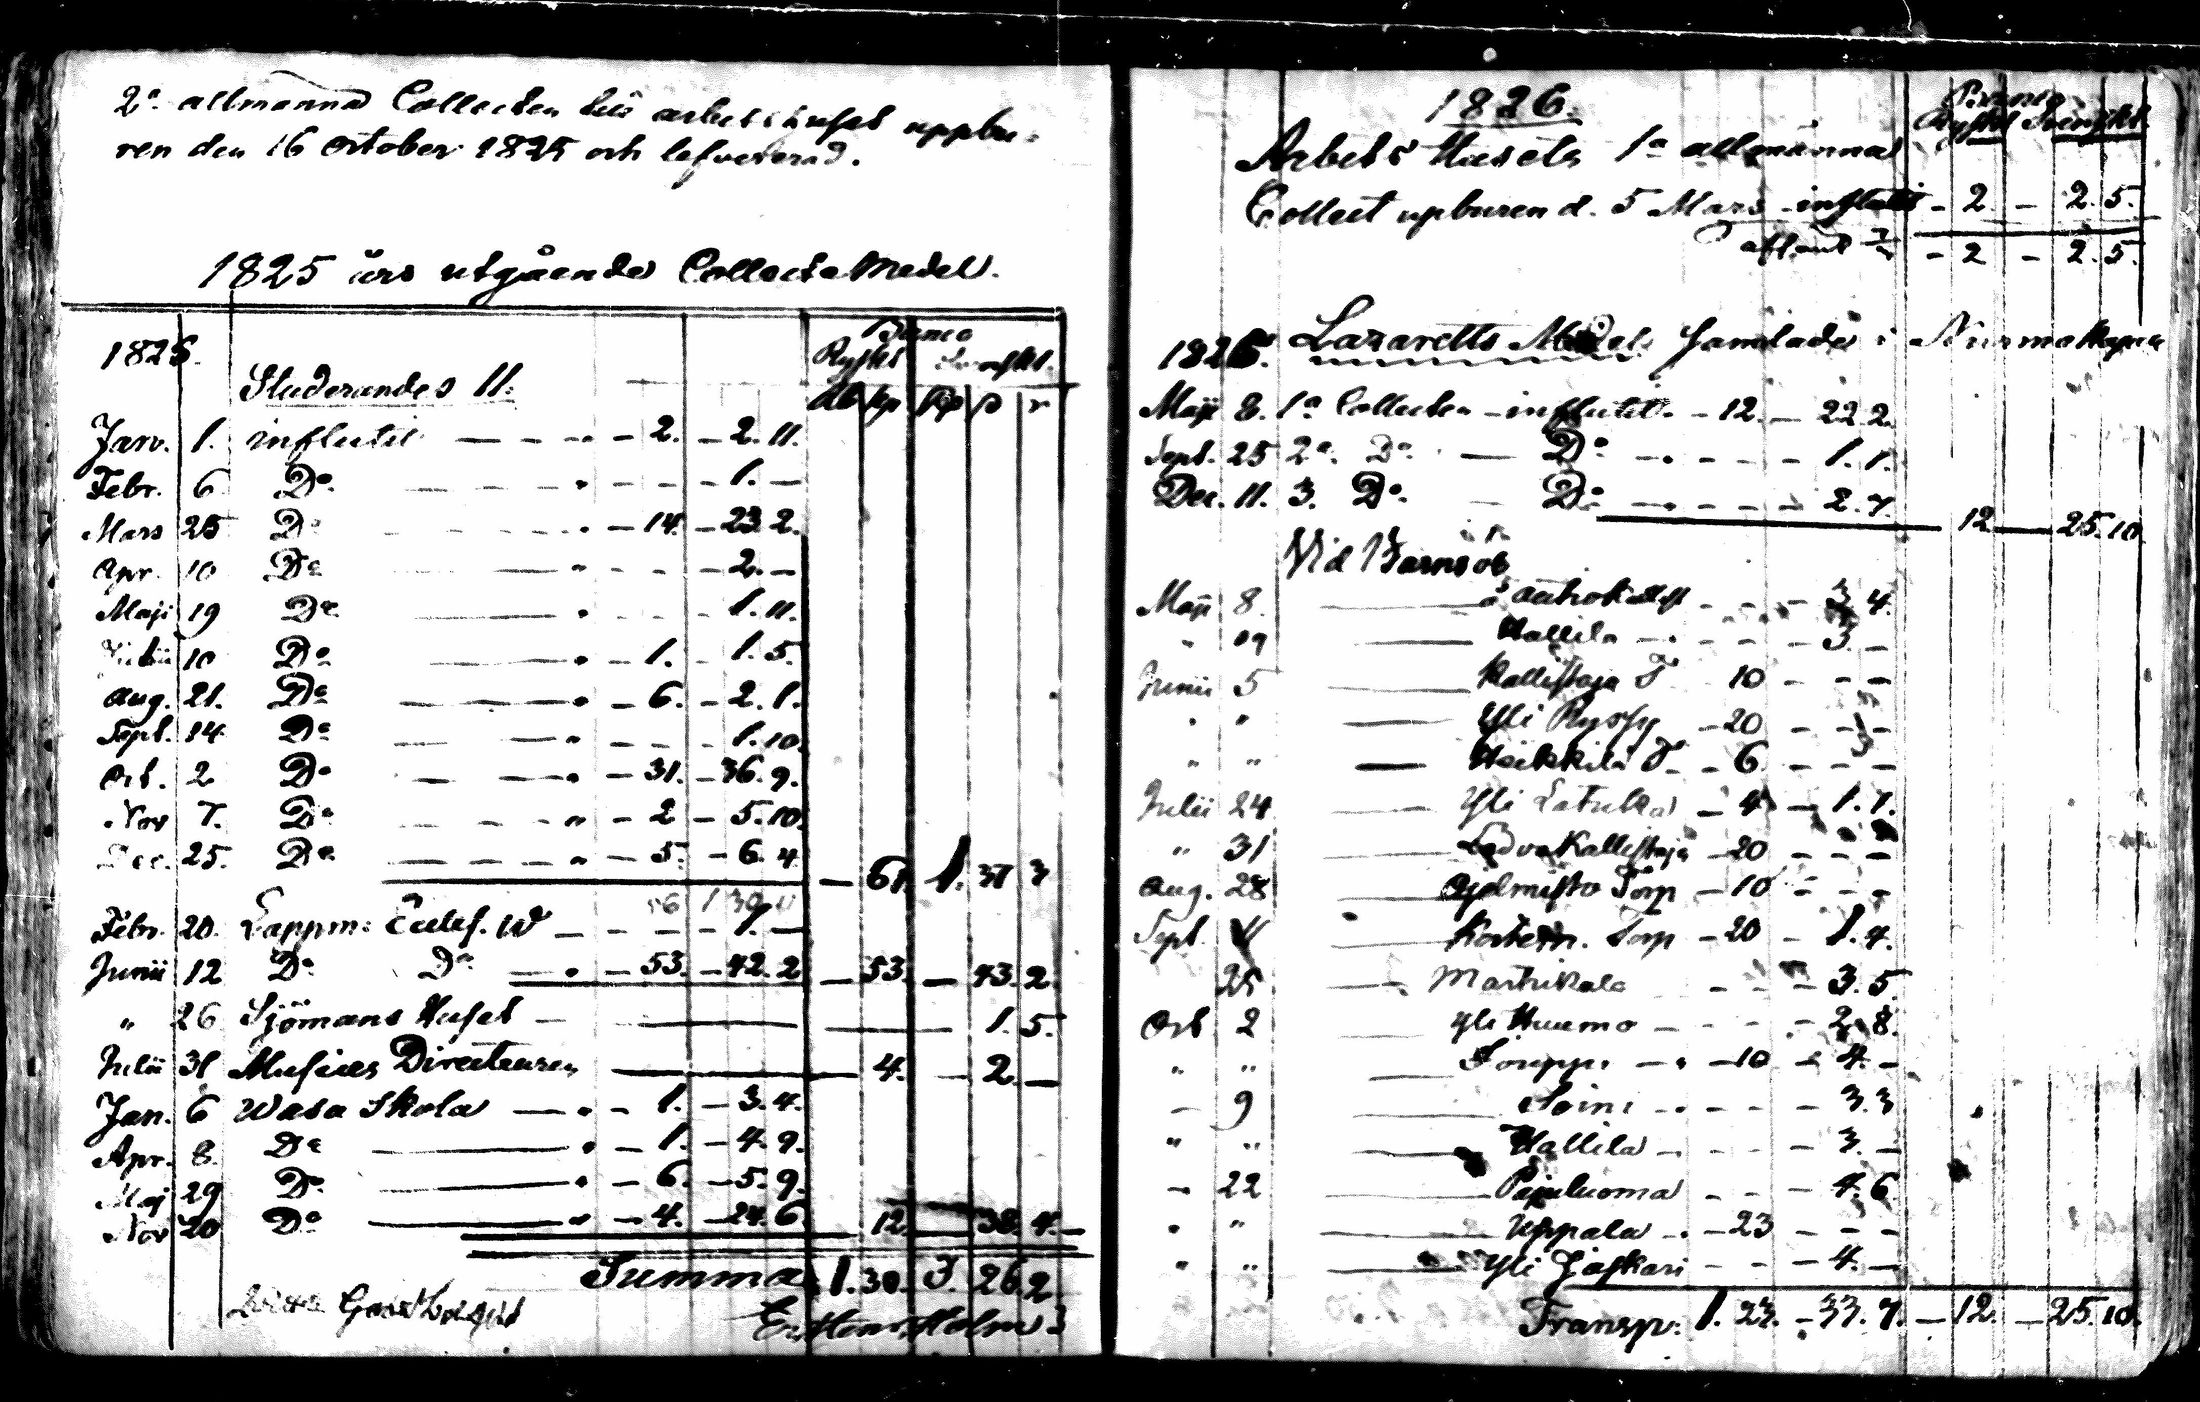 2a allmänna Collecten till arbetshuset uppbu-
ren den 16 October 1825 och lefvererad.
1825 års utgående Collecte Medel.
1825. Banco
Ryskt Svenskt.
Studerandes U. Rb kp Rd s r
Janv. 1. influtit — — — " — 2. — 2. 11.
Febr. 6 Do — — — " — — — 1. —
Mars 25 Do — — — " — 14. — 23. 2.
Apr. 10 Do — — — " — — — 2. —
Maji 19 Do — — — " — — — 1. 11.
10 Do — — — " — 1. — 1. 5.
Aug. 21. Do — — — " — 6. — 2. 1.
Sept. 14 Do — — — " — — — 1. 10.
Oct. 2 Do — — — " — 31. — 36. 9.
Nov 7. Do — — — " — 2 — 5. 10.
Dec. 25. Do — — — " — 5. — 6. 4.
— 61. 1. 37 3
Febr. 20. Lappm: — — — — — 1. —
Junii 12 Do Do — " — 53. — 42. 2 — 53. — 43. 2.
" 26 Sjömans Huset — — — — — 1. 5.
Julii 31 Musices Directeuren — — 4. — 2. —
Jan. 6 Wasa Skola — " — 1. — 3. 4.
Apr. 8. Do — " — 1. — 4. 9.
Maj 29 Do — " — 6. — 5. 9.
Nov 20 Do — " — 4. — 24. 6. 12. — 38. 4.
Summa 1. 30. 3. 26. 2
1826.
Banco
Ryskt Svenskt.
Arbets Husets 1a allmänna
Collect upburen d. 5 Mars influtit — 2 — 2. 5.
— 2 — 2. 5.
1826. Lazaretts Medel samlade i Nurmo Kapell
Maji 8. 1a Collecten — influtit — 12. — 22. 2.
Sept. 25 2a. Do. — Do — " — — — 1. 1.
Dec. 11. 3. Do. — Do — " — — — 2. 7.
12 — 25. 10.
Vid Barnsöl
Maji 8. — — — — 3. 4.
" 19 — Hallila — " — — — 3. —
Junii 5 — Kallistaja T 10 — — —
" " — Yli Ryssy — 20 — — —
" " — Heikkilä T — 6 — — —
Julii 24 — Yli Latukka — 4 — 1. 1.
" 31 — Ladvakallistaja — 20 — — —
Aug. 28 — Torp — 10 — — —
Sept. — Torp — 20 — 1. 4.
25 — Martikala — — — 3. 5.
Oct 2 Yli Huumo — — — 2. 8.
" " — Souppi — " — 10 — 4. —
— 9 — Soini — " — — — 3. 3
" " — Hallila — " — — — 3. —
— 22 — Pajuluoma — — — 4. 6.
" " — Uppala — " — 23 — — —
" " — Yli Jaskari — — — 4. —
Transp: 1. 23. — 37. 7. — 12. — 25. 10.